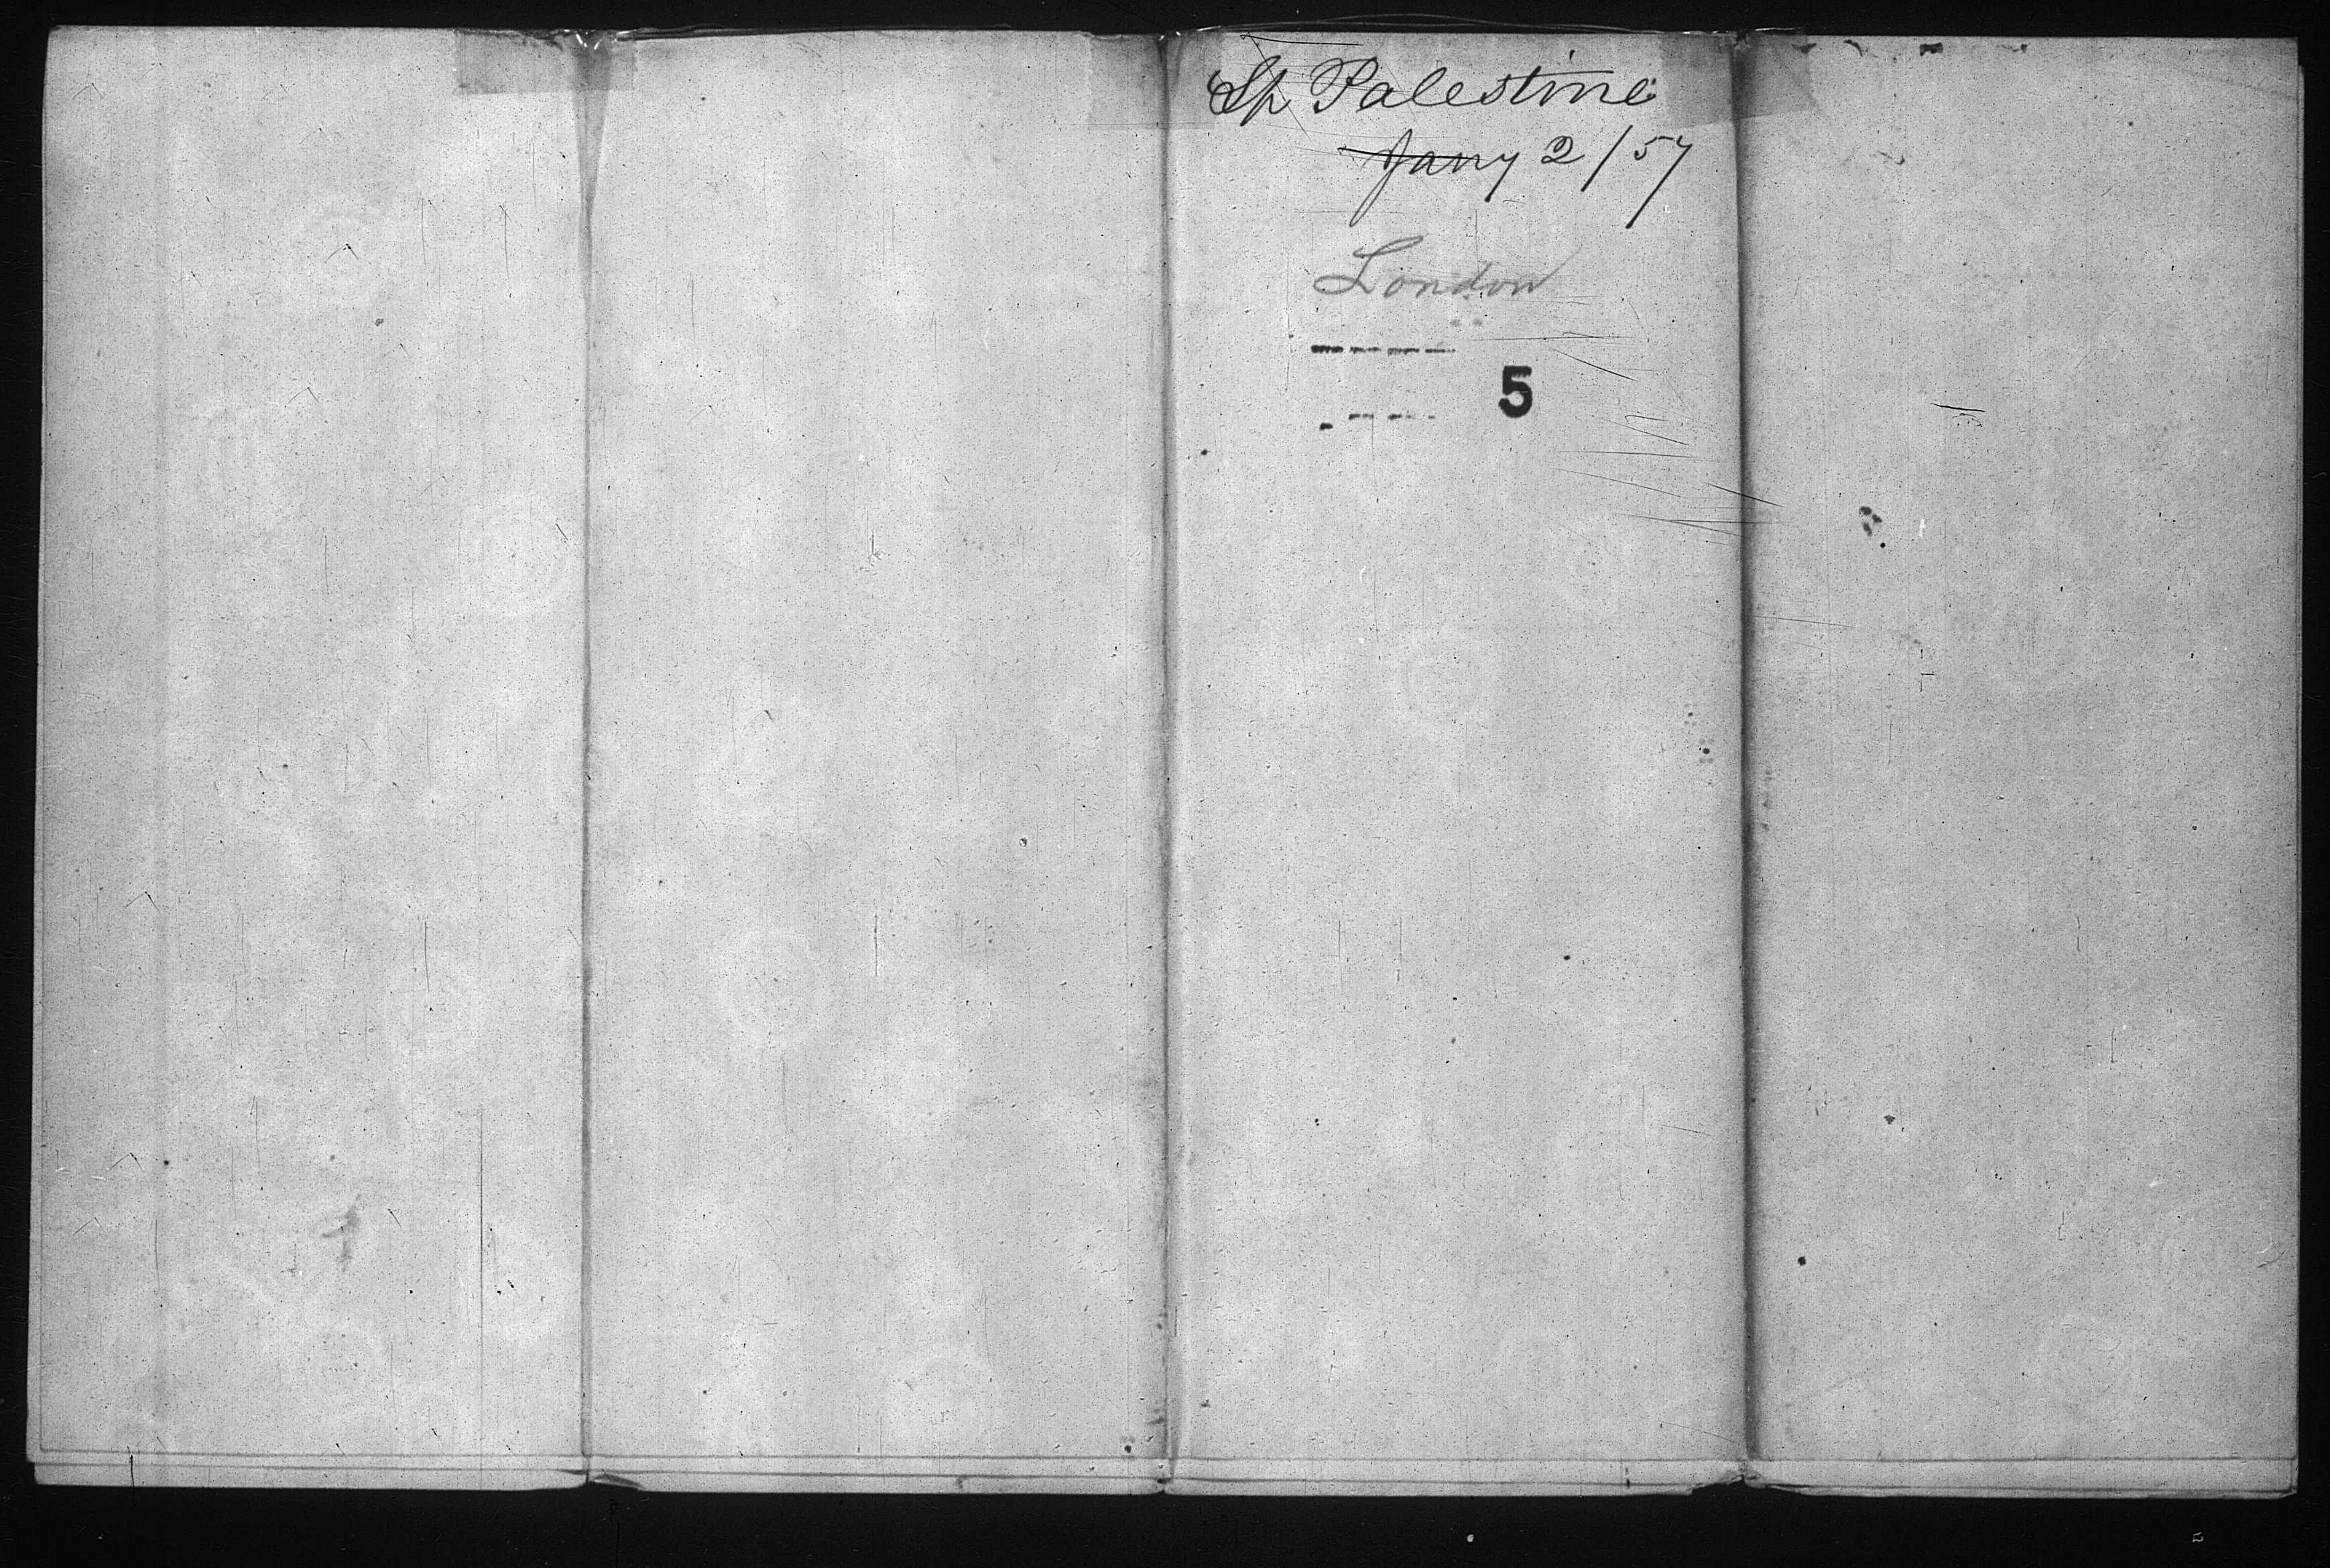 Sh Palestine
Jany 2/57
London
5